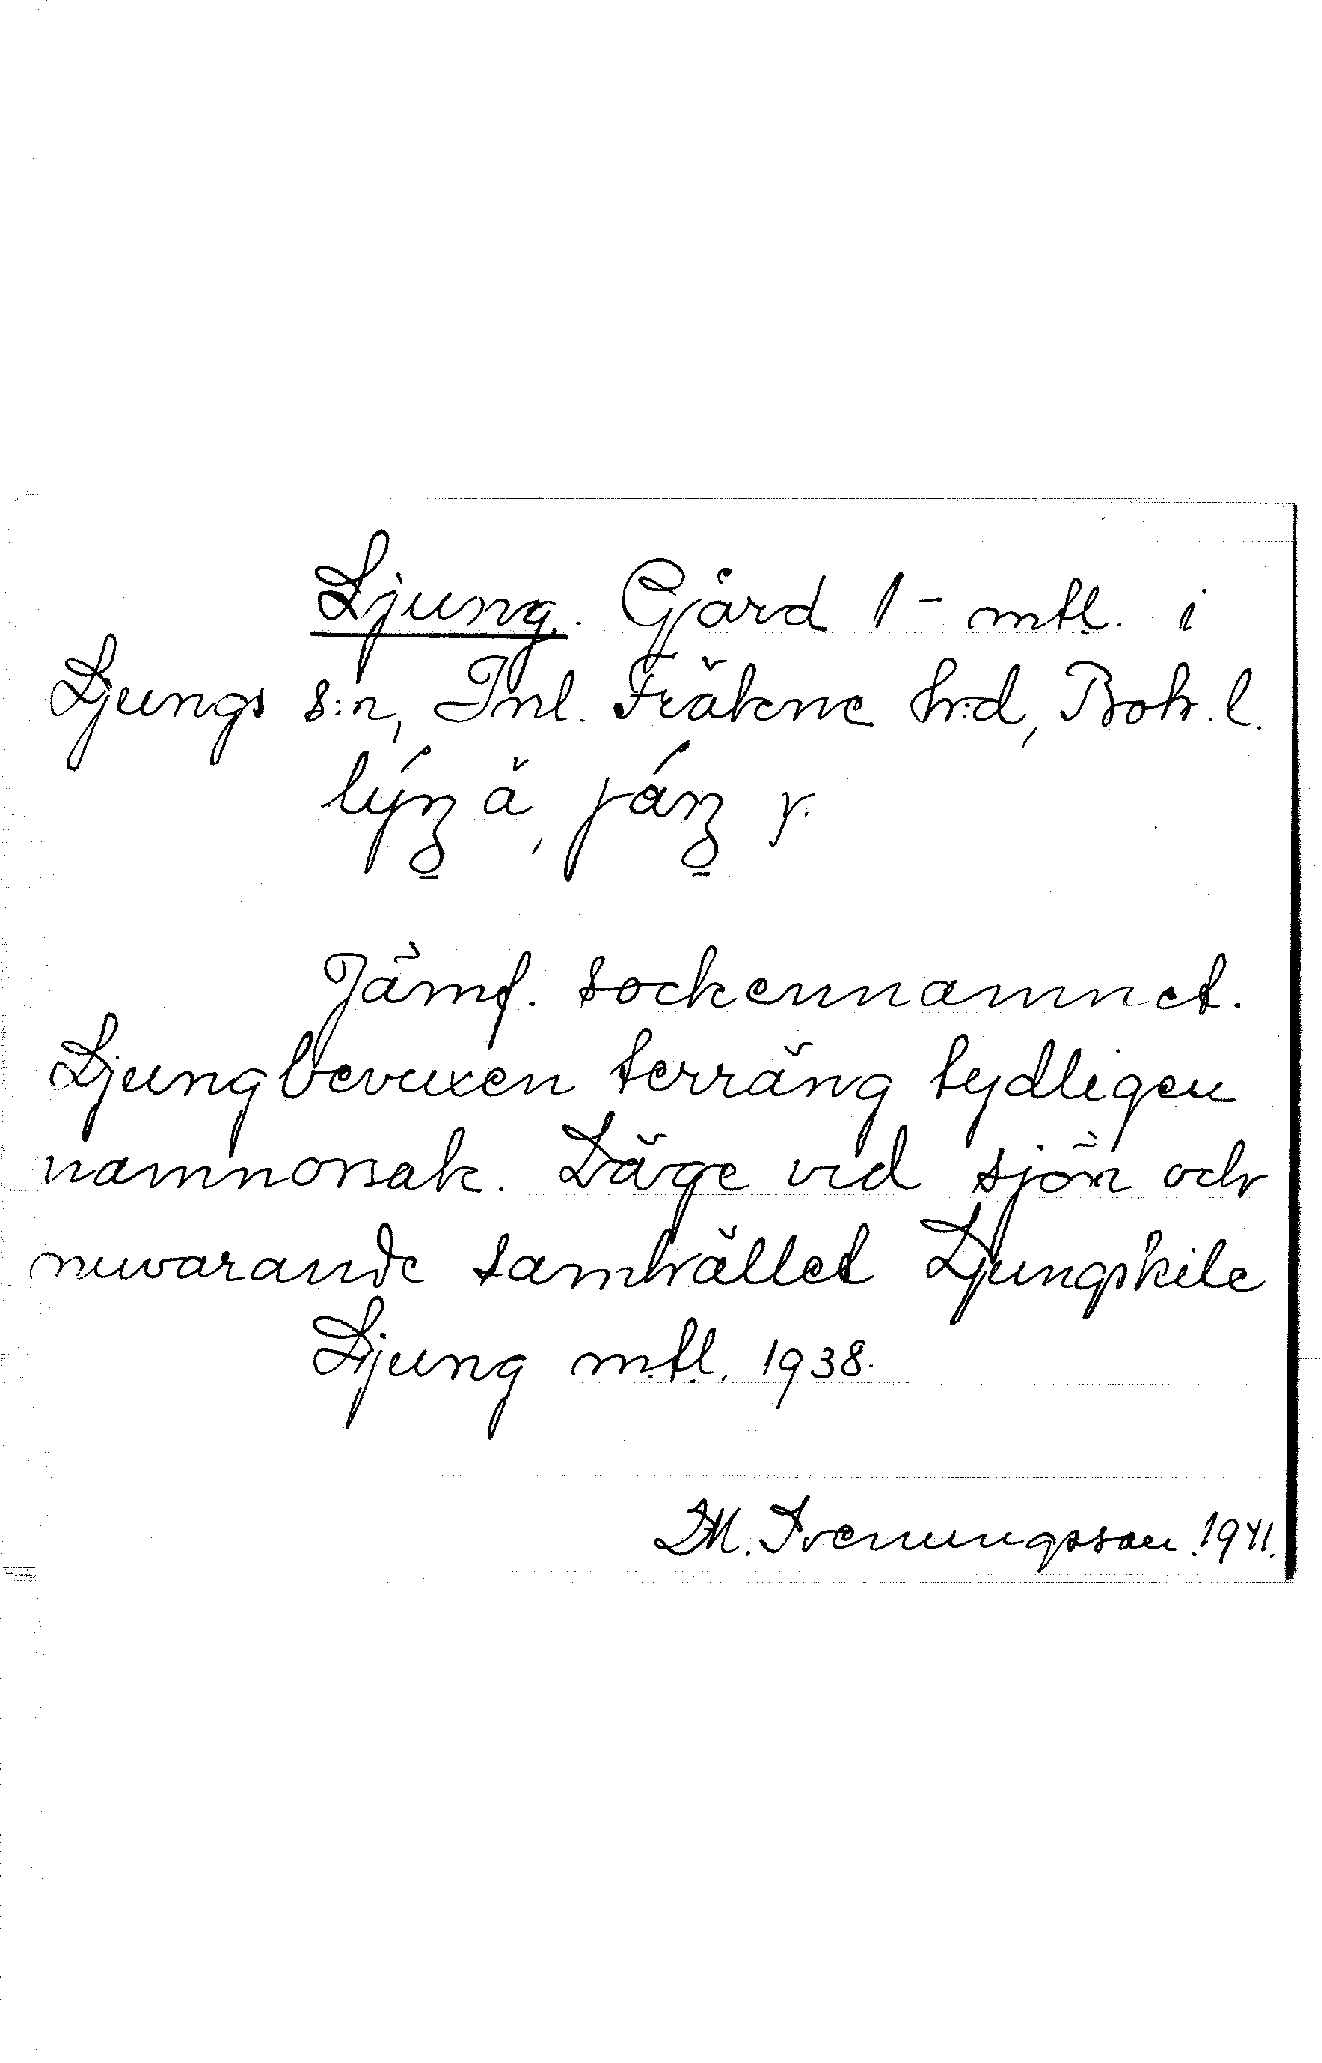 Ljung. Gård 1 - mtl. i
Ljungs s:n, Inl. Fräkne hrd, Boh. l.
ä, y.
Jämf. sockennamnet.
Ljungbevuxen terräng tydligen
namnorsak. Läge vid sjön och
nuvarande samhället Ljungskile
Ljung mtl. 1938.
M. Svenungsson 1941.